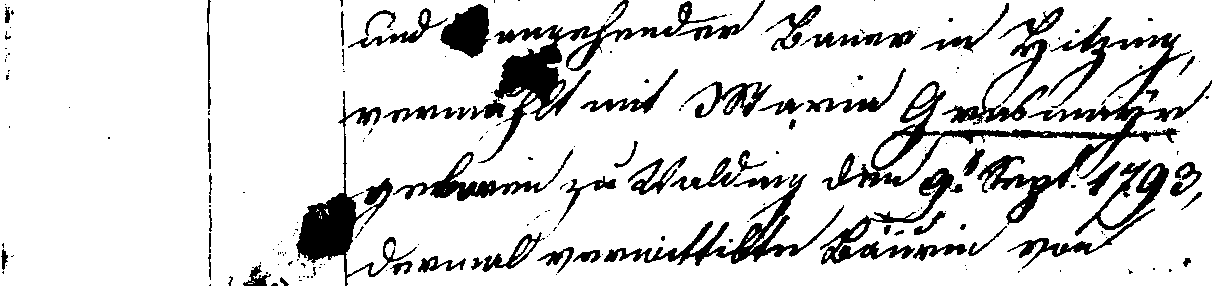 und angehender Bauer in Hitzing,
vermählt mit Maria Grasmayr
geboren zu Walding den 9t. Sept. 1793,
dermal verwittibte Bäurin von